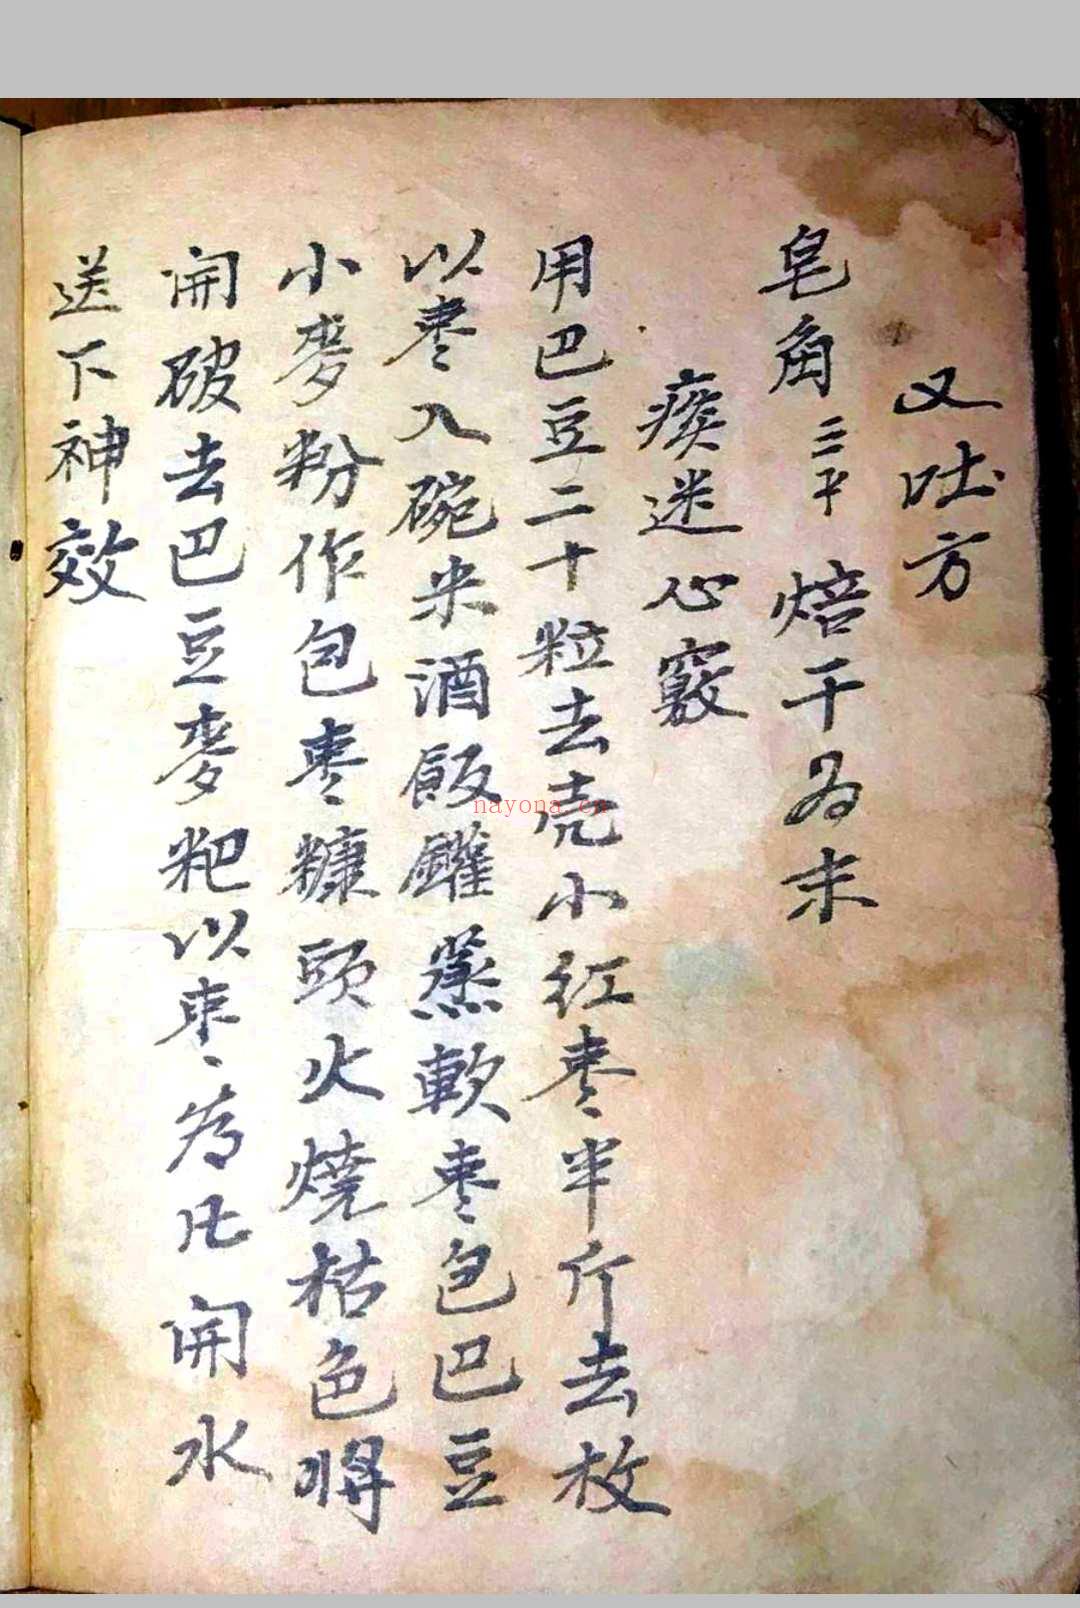 又吐方
皂角三羊 焙干為末
痰迷心竅
用巴豆二十粒去壳小红枣半斤去枚
以枣入碗米酒飯罐蒸軟枣包巴豆
小麥粉作包枣糠頭火燒枯色將
開破去巴豆麥粑以枣為凡開水
送下神效
nayona.cn